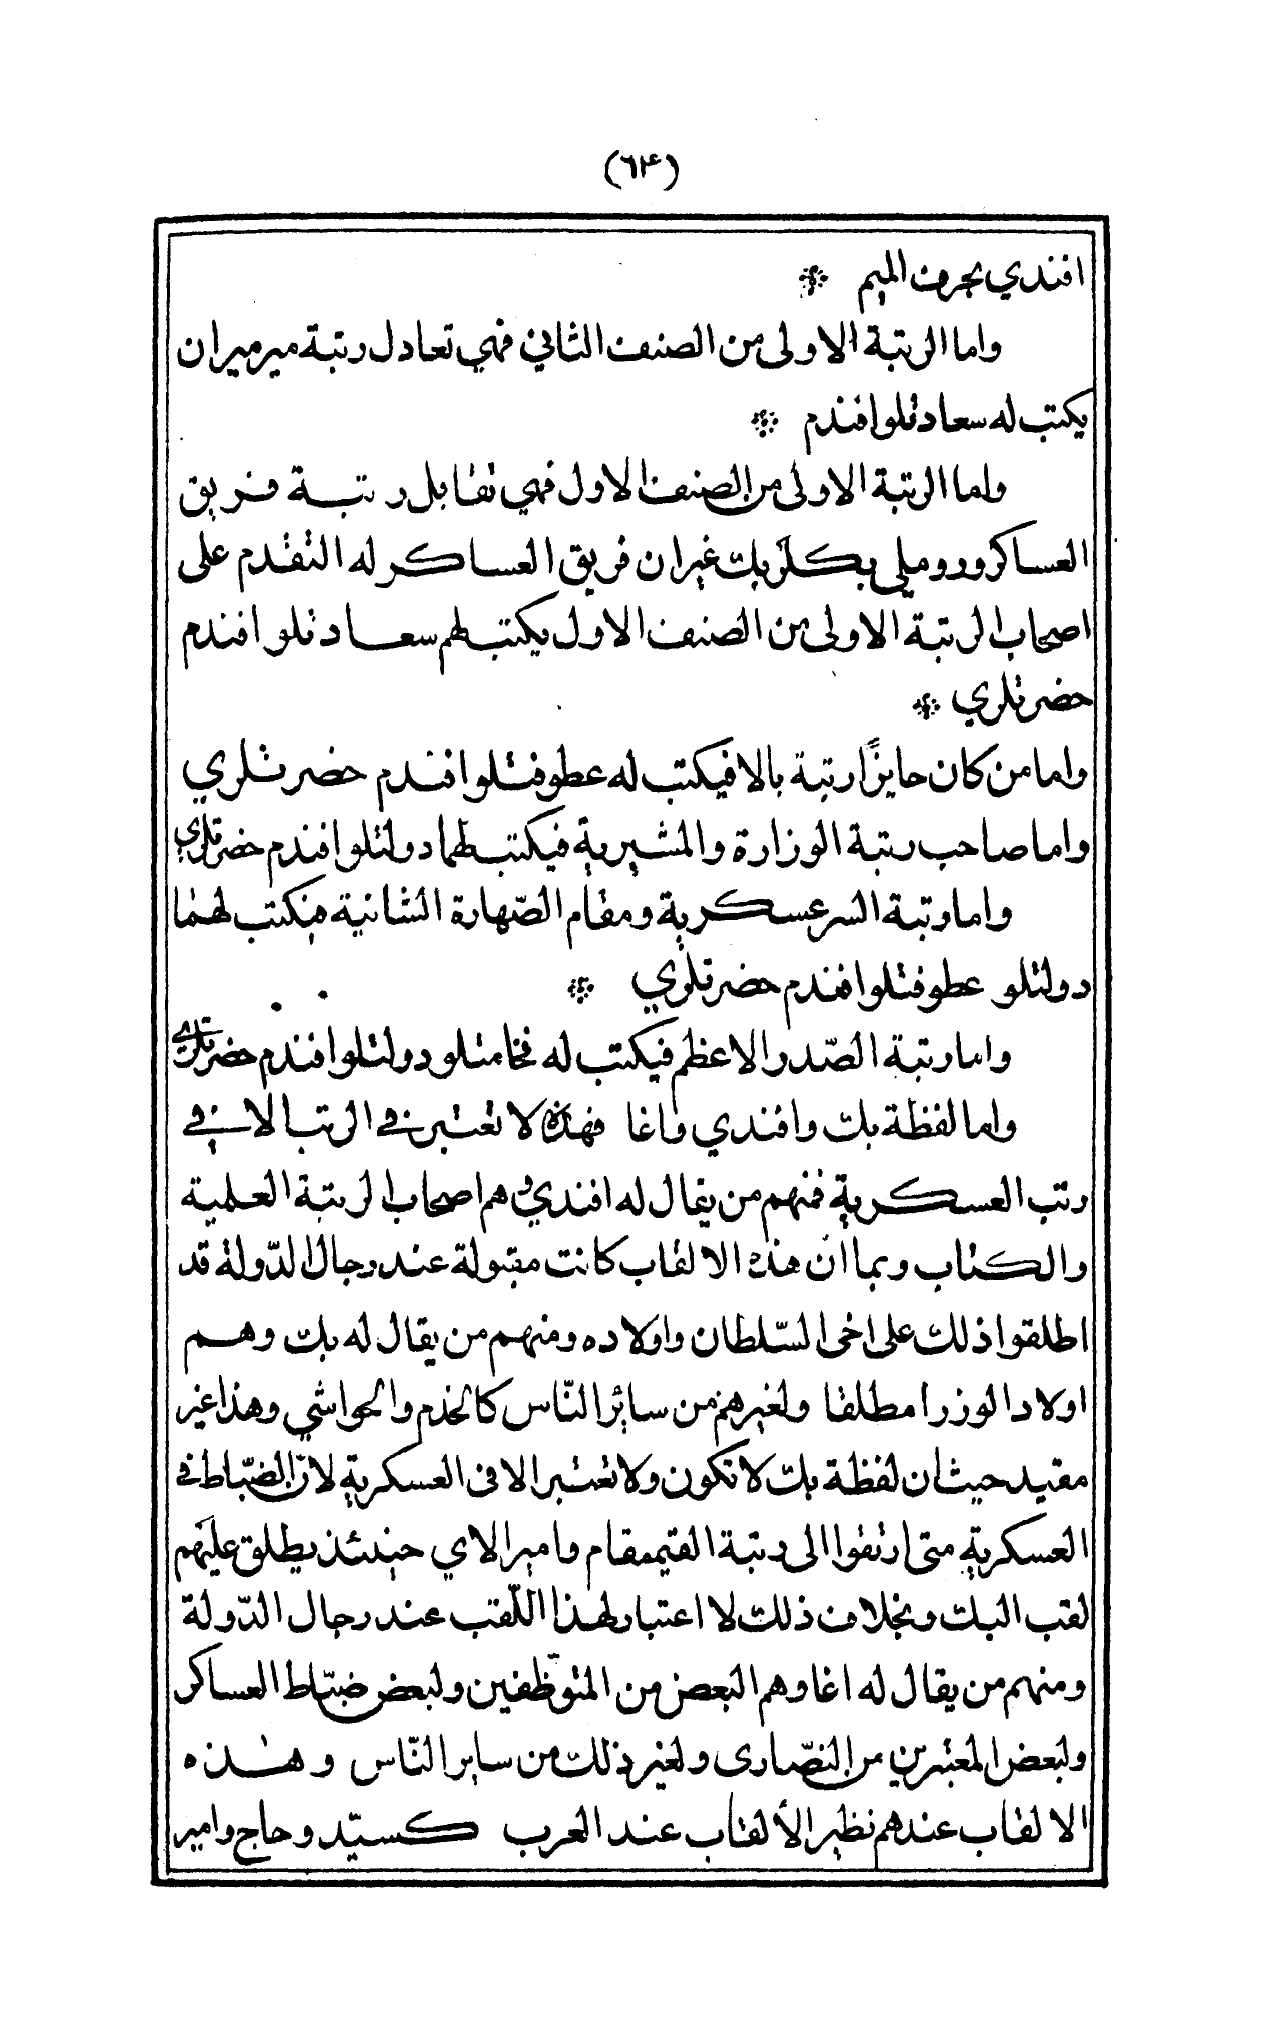 (٦٤)
افندي بحرف الميم *
واما الرتبة الاولى من الصنف الثاني فهي تعادل رتبة ميرميران
يكتب له سعادتلو افندم *
واما الرتبة الاولى من الصنف الاول فهي تقابل رتبة فريق
العساكر وروميلي بكلربك غير ان فريق العساكر له التقدم على
اصحاب الرتبة الاولى من الصنف الاول يكتب لهم سعادتلو افندم
حضرتلري *
واما من كان حايزًا رتبة بالا فيكتب له عطوفتلو افندم حضرتلري
واما صاحب رتبة الوزارة والمشيرية فيكتب لهما دولتلو افندم حضرتلري
واما رتبة السرعسكرية ومقام الصّهارة الشانية فيكتب لهما
دولتلو عطوفتلو افندم حضرتلري *
واما رتبة الصّدر الاعظم فيكتب له فخامتلو دولتلو افندم حضرتلري
واما لفظة بك وافندي واغا فهذه لا تعتبر في الرتب الا في
رتب العسكرية فمنهم من يقال له افندي وهم اصحاب الرتبة العلمية
والكتاب وبما ان هذه الالقاب كانت مقبولة عند رجال الدّولة قد
اطلقوا ذلك على اخي السّلطان واولاده ومنهم من يقال له بك وهم
اولاد الوزرا مطلقا ولغيرهم من سائر النّاس كالخدم والحواشي وهذا غير
مقيد حيث ان لفظة بك لا تكون ولا تعتبر الا في العسكرية لانّ الضبّاط في
العسكرية متى ارتقوا الى رتبة القيمقام واميرالاي حينئذ يطلق عليهم
لقب البك وبخلاف ذلك لا اعتبار لهذا اللّقب عند رجال الدّولة
ومنهم من يقال له اغا وهم البعض من المتوظّفين ولبعض ضبّاط العساكر
ولبعض المعتبرين من النّصارى ولغير ذلك من ساير النّاس وهذه
الالقاب عندهم نظير الألقاب عند العرب كسيّد وحاج وامير